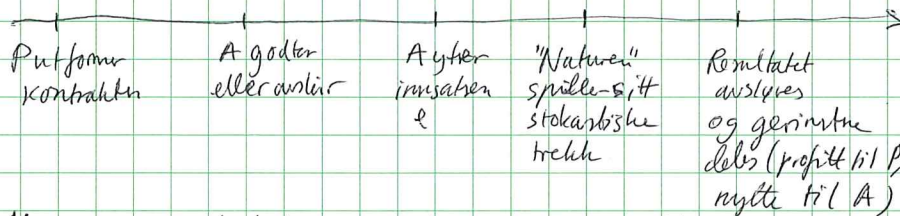 P utformer
kontrakten
A godtar
eller avslår
A yter
innsatsen
e
"Naturen"
spiller sitt
stokastiske
trekk
Resultatet
avsløres
og gevinstene
deles (profitt til P,
nytte til A)